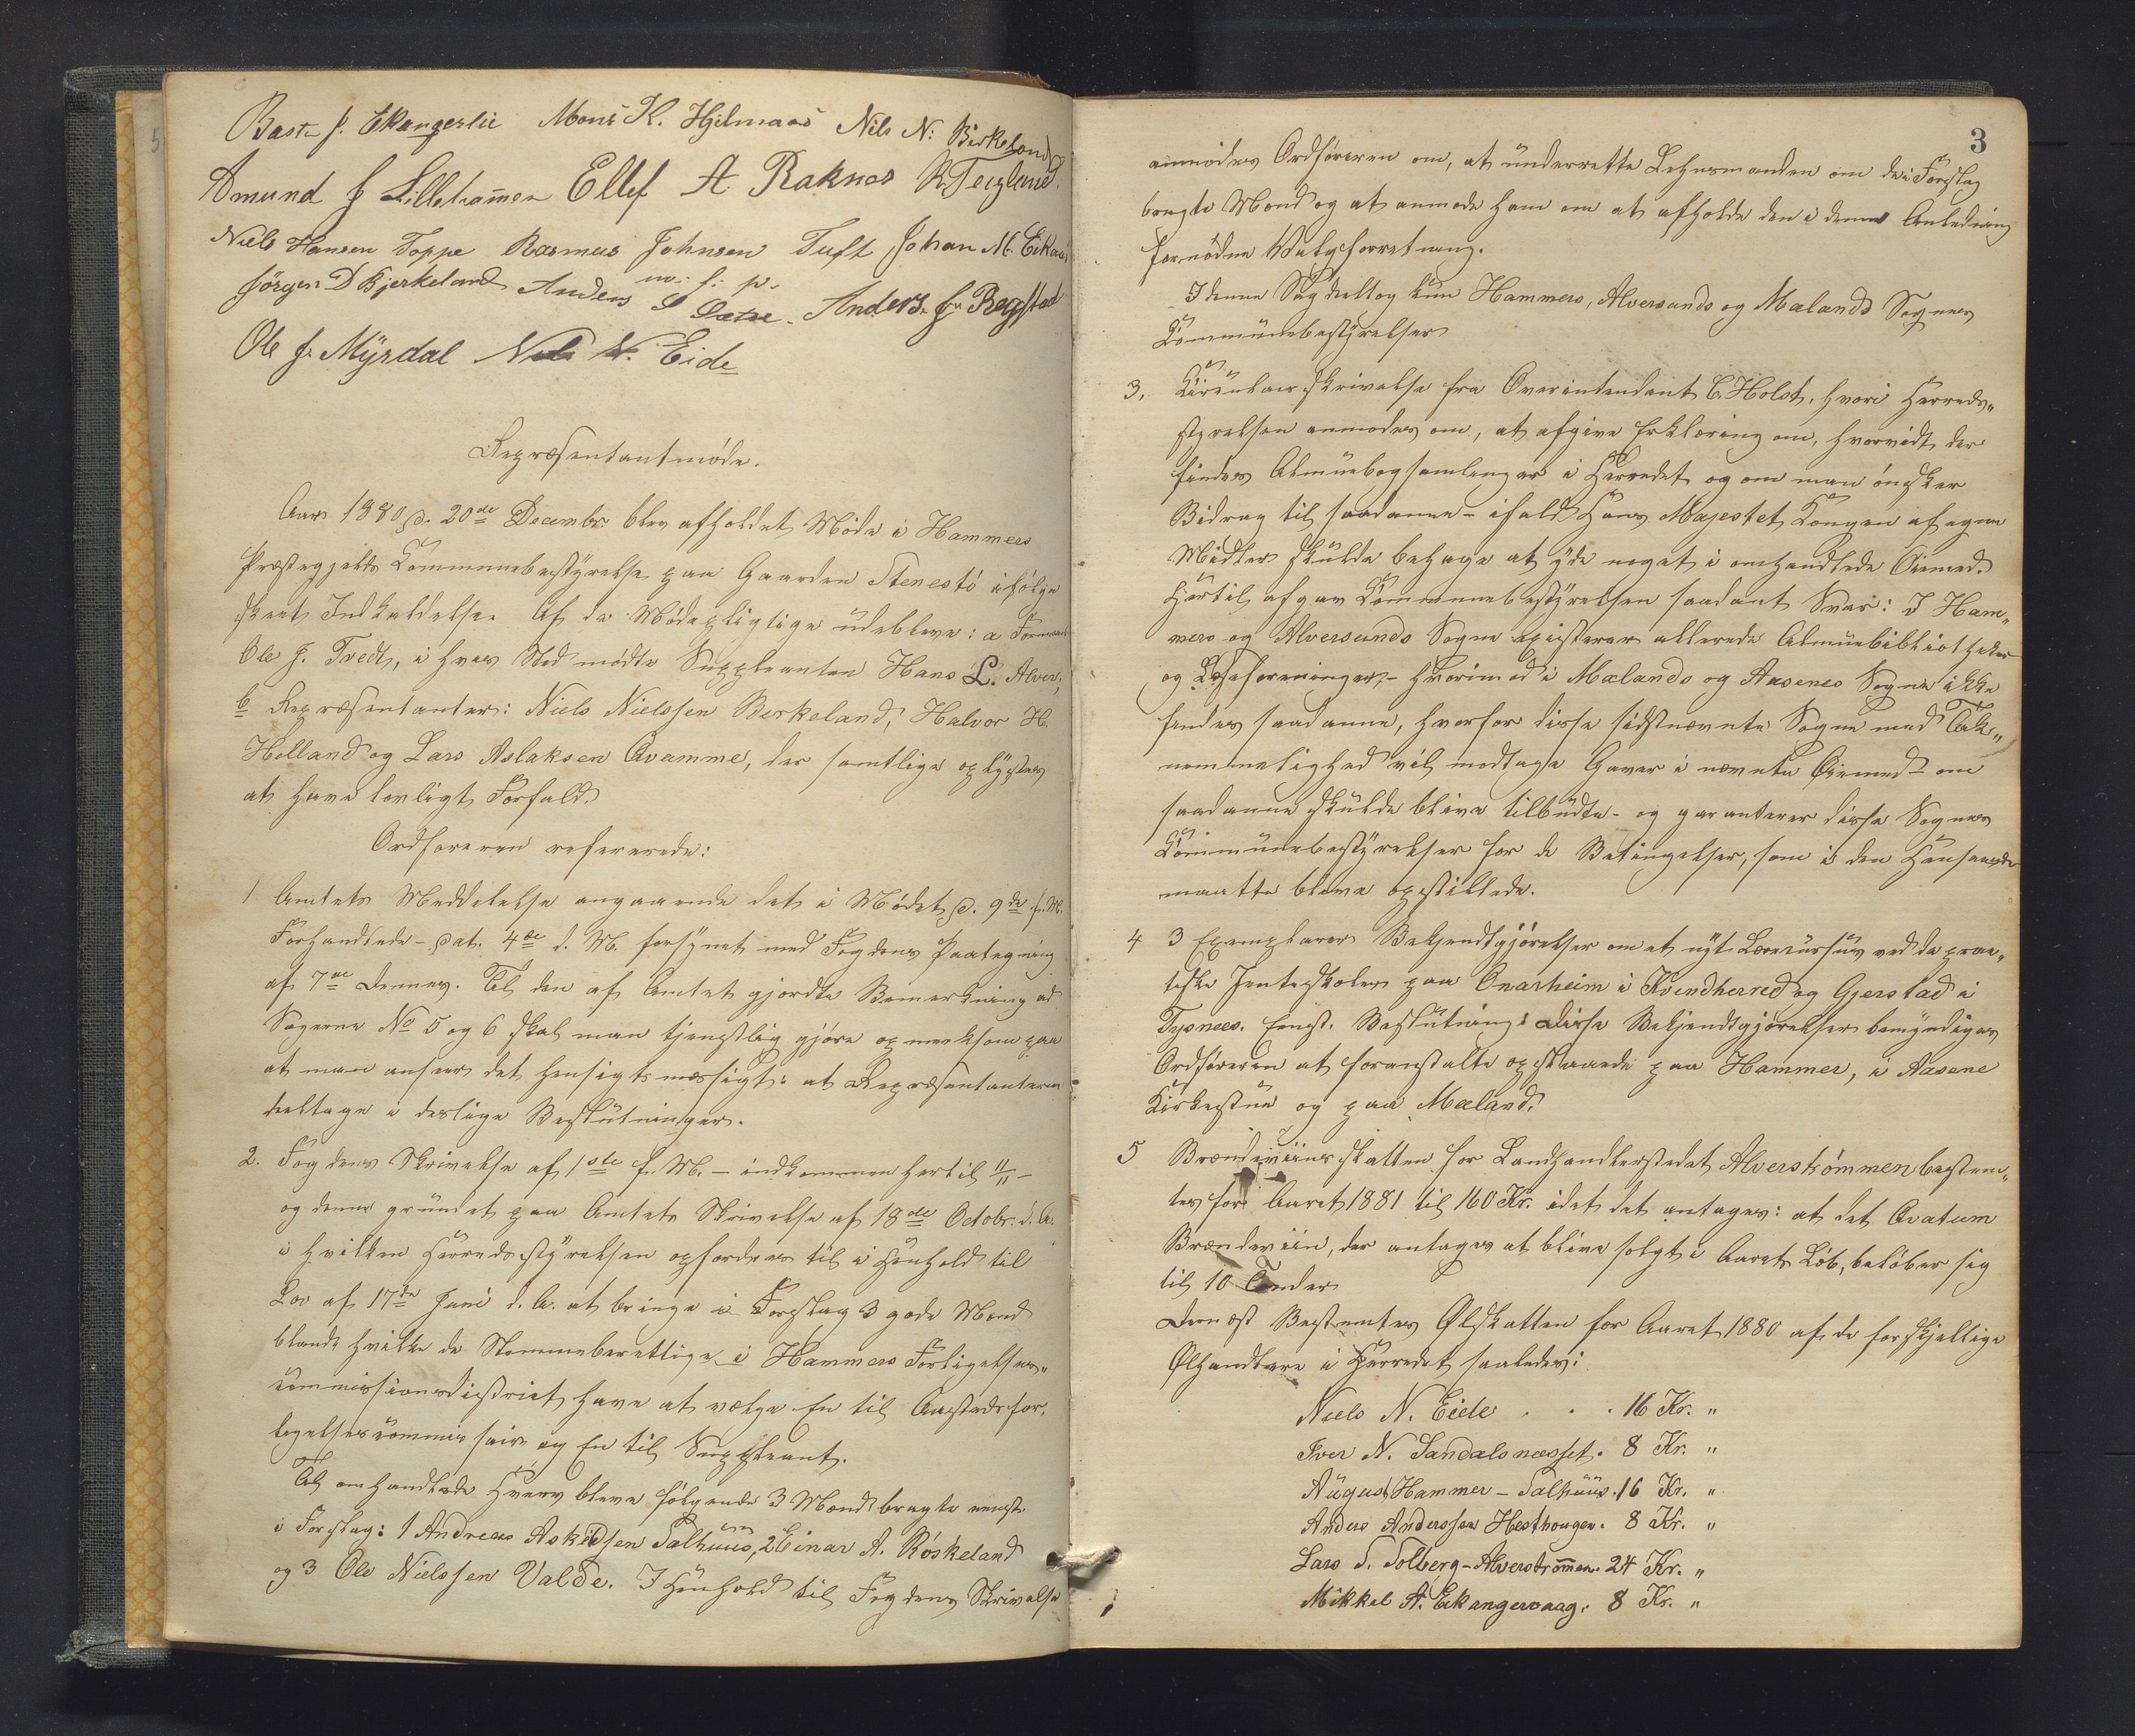 Bast. J. Ekangerlie Mons K. Hjelmaas Nils N: Birkeland
Amund J Lilletvømmen Ellef A. Raknes R. Teigland.
Niels Hansen Toppe Rasmus Johnsen Tuft Johan M. Eikaas
m: f: p.
Jörgen D Bjerkeland Anders S Sætre. Anders Jr Regstad
Ole Jr Myrdal Nils N. Eide
Repræsentantmöde.
Aar 1880, d. 20de Decembr. blev afholdet Möde i Hammers
Præstegjelds Kommunebestyrelse paa Gaarden Stenestö ifölge
skeet Indkaldelse. Af de Mödepligtige udebleve: a Formand
Ole J. Tvedt, i hvis Sted mödte Suppleanten Hans L. Alver,
b Repræsentanter: Niels Nielssen Berkeland, Halvor H.
Holland og Lars Aslaksen Qvamme, der samtlige oplystes
at have lovligt Forfald.
Ordföreren refererede:
1 Amtets Meddelelse angaaende det i Mödet d. 9de f. M.
Forhandlede - dat. 4de d. M. forsynet med Fogdens Paategning
af 7de dennes. Til den af Amtet gjordte Bemerkning ad
Sagerne No 5 og 6 skal man tjenstlig gjöre opmerksom paa
at man anseer det hensigtsmæssigt: at Repræsentanterne
deeltage i deslige Beslutninger.
2. Fogdens Skrivelse af 1ste f. M. - indkommen hertil 11/11 -
og denne grundet paa Amtets Skrivelse af 18de Octobr. d. A.
i hvilken Herredsstyrelsen opfordres til i Henhold til
Lov af 17de Juni d. A. at bringe i Forslag 3 gode Mænd
blandt hvilke de Stemmeberettige i Hammers Forligelses„
commissionsdistrict have at vælge En til Aastedsfor„
ligelsescommissair og En til Suppleant.
Til omhandlede Hverv bleve fölgende 3 Mænd bragte eenst.
i Forslag: 1 Andreas Askildsen Salhuus, 2 Einar A. Röskeland
og 3 Ole Nielssen Valde. I Henhold til Fogdens Skrivelse
3
anmodes Ordföreren om, at underrette Lehnsmanden om de i Forslag
bragte Mænd og at anmode ham om at afholde den i denne Anledning
fornödne Valgforretning.
I denne Sag deeltog kun Hammers, Alversunds og Mælands Sognes
Kommunebestyrelser
3. Cirkulærskrivelse fra Overintendant C. Holst, hvori Herreds„
styrelsen anmodes om, at afgive Erklæring om, hvorvidt der
findes Almuebogsamlinger i Herredet og om man önsker
Bidrag til saadanne - ifald Hans Majestet Kongen af egne
Midler skulde behage at yde noget i omhandlede Öiemed.
Hertil afgav Kommunebestyrelsen saadant Svar: I Ham„
mers og Alversunds Sogne existerer allerede Almuebibliotheker
og Læseforeninger, - hvorimod i Mælands og Aasenes Sogne ikke
findes saadanne, hvorfor disse sidstnævnte Sogne med Tak„
nemmelighed vil modtage Gaver i nævnte Öiemed - om
saadanne skulde blive tilbudte - og garanterer disse Sognes
Kommunebestyrelser for de Betingelser, som i den Henseende
maatte blive opstillede.
4 3 Exemplarer Bekjendtgjörelser om et nyt Lærecursus ved de prac„
tiske Jenteskoler paa Onarheim i Kvindherred og Gjerstad i
Tysnees. Eenst. Beslutning: disse Bekjendtgjörelser bemyndiges
Ordföreren at foranstalte opslaaede paa Hammer, i Aasene
Kirkestue og paa Mæland.
5 Brændeviinsskatten for Landhandlerstedet Alverströmmen bestem„
tes for Aaret 1881 til 160 Kr. idet det antages: at det Qvatum
Brændeviin, der antages at blive solgt i Aarets Löb, belöber sig
til 10 Tönder
Dernæst Bestemtes Ølskatten for Aaret 1880 af de forskjellige
Ølhandlere i Herredet saaledes:
Niels N. Eide . . . 16 Kr. „
Iver N. Sandalsnæsset. 8 Kr. „
August Hammer - Salhuus. 16 Kr. „
Anders Anderssen Hesthougen. 8 Kr. „
Lars S. Solberg - Alverströmmen. 24 Kr. „
Mikkel A. Eikangervaag. 8 Kr. „